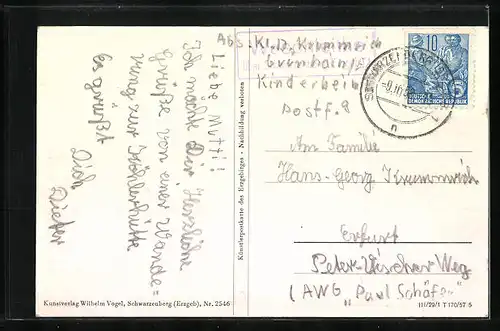 Liebe Mutti!
Ich möchte Dir Herzliche
Grüße von einer Wande=
rung zur Köhlerhütte
Es grüßt
Dich
Dieter
Kunstverlag Wilhelm Vogel, Schwarzenberg (Erzgeb), Nr. 2546
Künstlerpostkarte des Erzgebirges - Nachbildung verboten
Abs. Kl.D.
Kinderheim
Postf. 9
10
DEUTSCHE
DEMOKRATISCHE REPUBLIK
An Familie
Hans-Georg
Erfurt
Peter-Vischer Weg
(AWG „Paul Schäfer
III/29/1 T 170/57 5